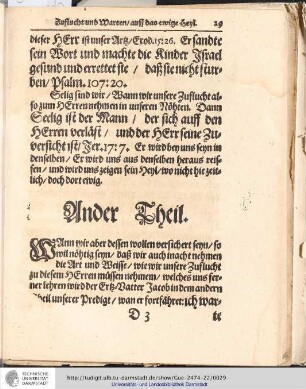 Zuflucht und Warten/ auff das ewige Heyl. 29
dieser HErr ist unser Artz/ Exod. 15:26. Er sandte
sein Wort und machte die Kinder Israel
gesund und errettet sie / daß sie nicht stür-
ben/ Psalm. 107:20.
Selig sind wir/ Wann wir unsere Zuflucht al-
so zum HErren nehmen in unseren Nöhten. Dann
Seelig ist der Mann / der sich auff den
HErren verläst / und der HErr seine Zu-
versicht ist/ Jer. 17:7. Er wird bey uns seyn in
denselben/ Er wird uns aus denselben heraus reis-
sen / und wird uns zeigen sein Heyl/ wo nicht hie zeit-
lich/ doch dort ewig.
Ander Theil.
WAnn wir aber dessen wollen versichert seyn/ so
wil nöhtig seyn/ daß wir auch in acht nehmen
die Art und Weisse / wie wir unsere Zuflucht
zu diesem HErren müssen nehmem/ welches uns fer-
ner lehren wird der Ertz-Vatter Jacob in dem andern
Theil unserer Predigt / wan er fortfähret: ich war-
D 3 te
TECHNISCHE
UNIVERSITÄT
DARMSTADT
http://tudigit.ulb.tu-darmstadt.de/show/Gue-2474-22/0029
Universitäts- und Landesbibliothek Darmstadt